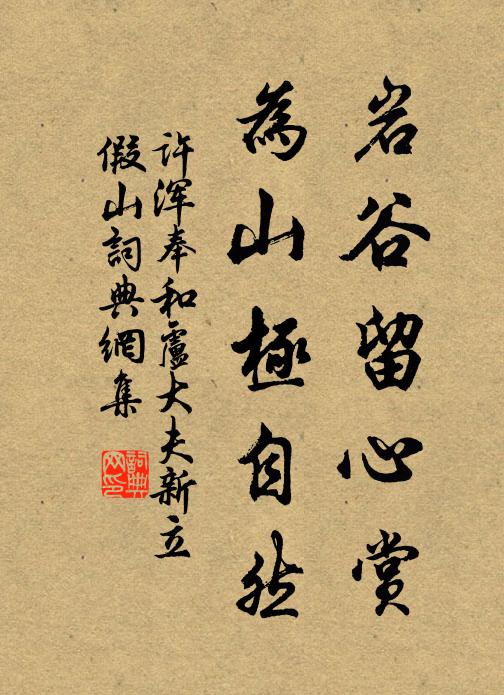 岩谷留心赏
為山極自然
许浑奉和盧大夫新立
假山詞典網集
詞典网印